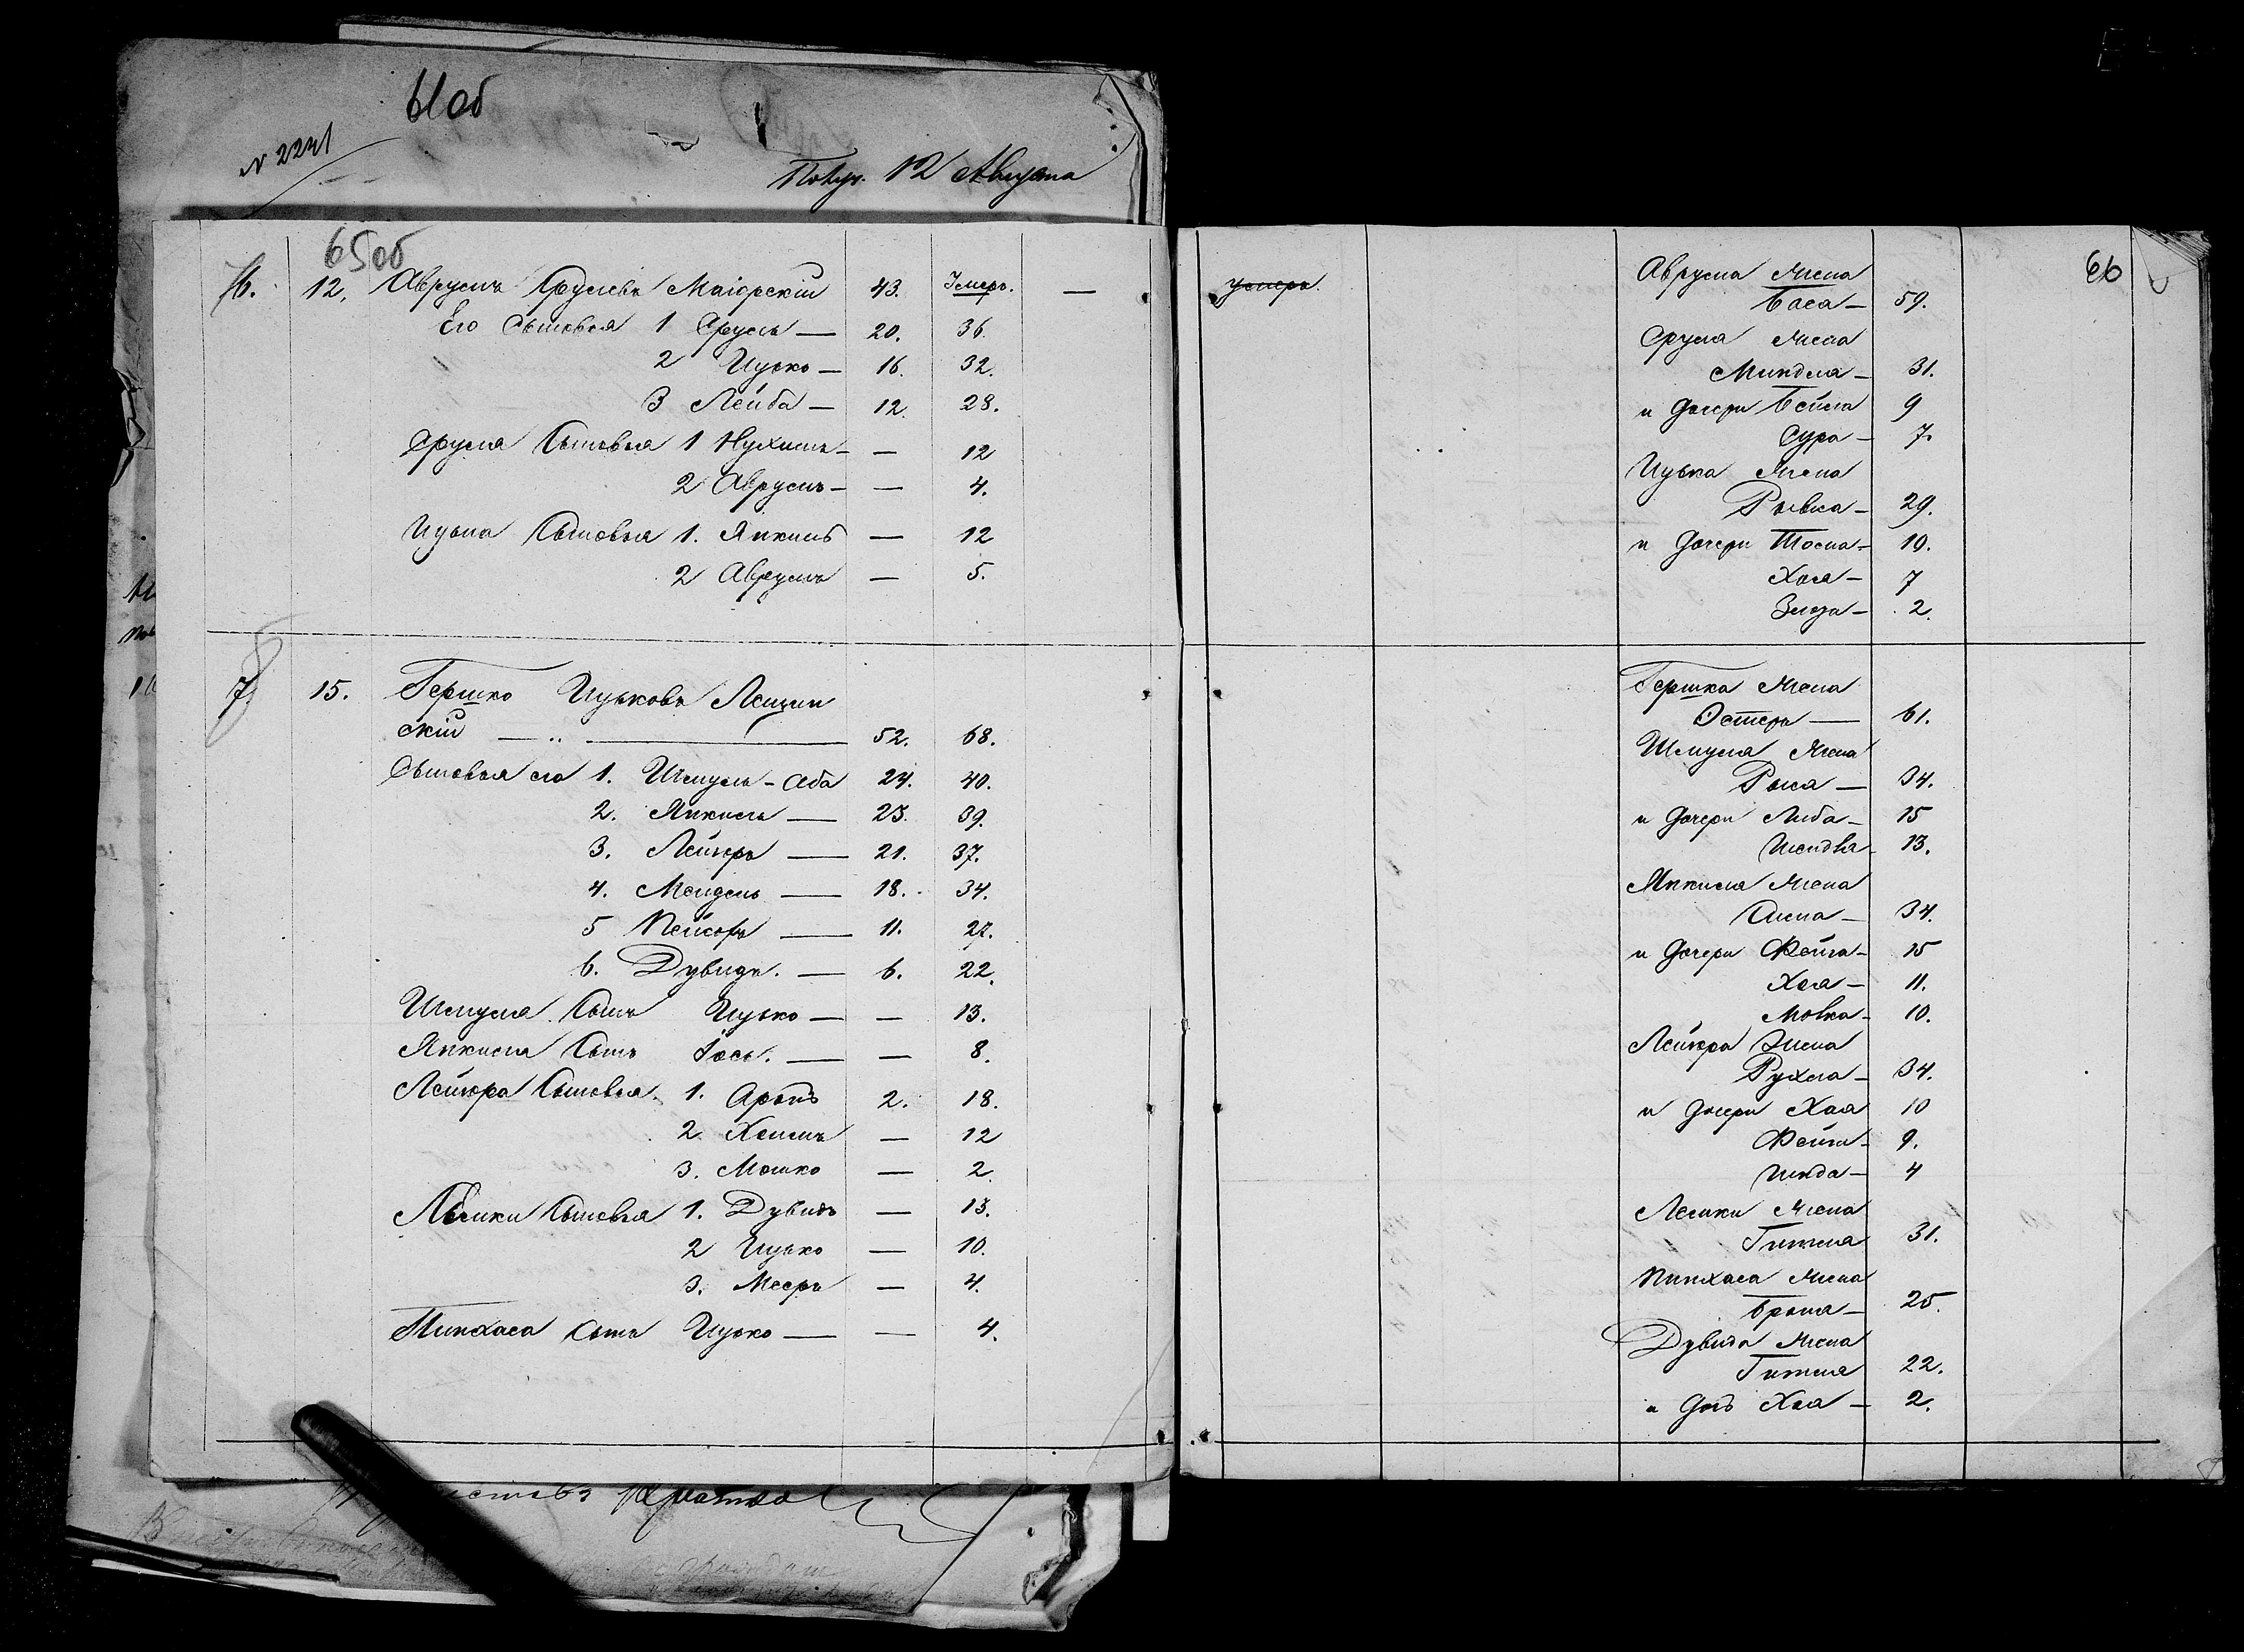 61 об
N 2241
Получ. 12 Августа
65 об
6. 12, Аврумъ Сруlевъ Маіорскій 43. Умеръ. —
Его Сыновья 1 Сруль — 20. 36.
2 Ицько — 16. 32.
3 Лейба — 12. 28.
Сруля Сыновья 1 Нухимъ — — 12
2 Аврумъ — — 4.
Ицька Сыновья 1. Янкель — 12
2 Аврумъ — 5.
7. 15. Гершко Ицьковъ Лещин
скій — 52. 68.
Сыновья его 1. Шмуль-Аба 24. 40.
2. Янкель — 23. 39.
3. Лейзоръ — 21. 37.
4. Мендель — 18. 34.
5 Пейсахъ — 11. 27.
6. Дувидъ. — 6. 22.
Шмуля Сынъ Ицько — — 13.
Янкеля Сынъ Іось. — — 8.
Лейзора Сыновья. 1. Аронъ 2. 18.
2. Хаимъ — 12
3. Мошко — 2.
Сыновья 1. Дувидъ — 13.
2 Ицько — 10.
3. Мееръ — 4.
Пинхаса Сынъ Ицько — — 4.
умеръ.
66
Аврума Жена
Бася — 59.
Сруля Жена
Миндля — 31.
и дочери Бейла 9
Сура — 7.
Ицька Жена
Рывка — 29.
и дочери Тоска — 10.
Хая — 7
Злота — 2.
Гершка Жена
Эстеръ — 61.
Шмуля Жена
Рыся — 34.
и дочери Либа — 15
13.
Янкеля Жена
34.
и дочери Фейга — 15
Хая — 11.
Малка — 10.
Лейзора Жена
Рухля — 34.
и дочери Хая 10
Фейга — 9.
Гинда — 4
Жена
Гитля 31.
Пинхаса Жена
25.
Дувида Жена
Гитля 22.
и дочь Хая — 2.